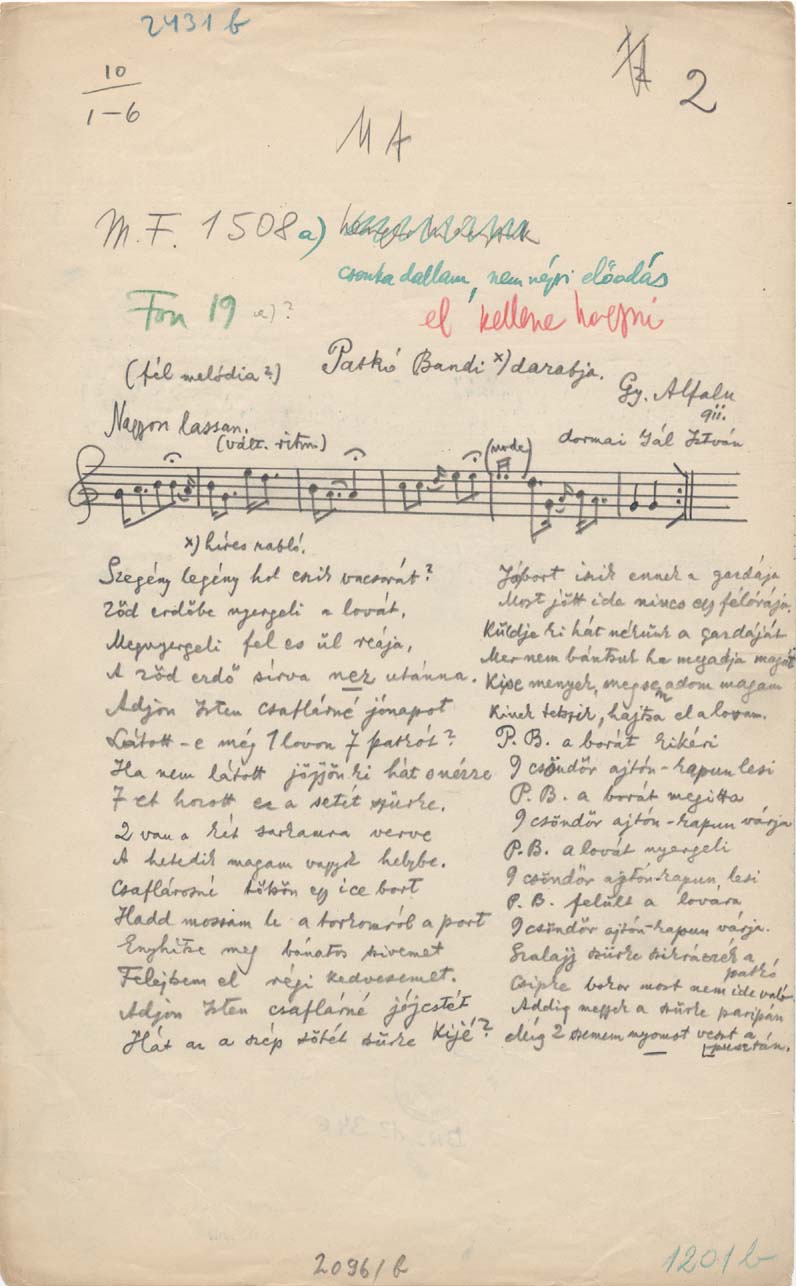 2431 b
10
1-6
2
MA
M. F. 1508 a)
csonka dallam, nem népi előadás
Fon 19 a)?
el kellene hagyni
(fél melódia?)
Patkó Bandi x) darabja.
Gy. Alfalu
Nagyon lassan.
(vált. ritm.)
dormai Gál István
x) híres rabló.
Szegény legény hol eszik vacsorát?
Zöd erdőbe nyergeli a lovát,
Megnyergeli fel es ül reája,
A zöd erdő sírva nez utánna.
Adjon Isten csaflárné jónapot
Látott-e még 1 lovon 7 patkót?
Ha nem látott jőjjön ki hát s nézze
7-et hozott ez a setét szürke.
2 van a két sarkamra verve
A hetedik magam vagyok helybe.
Csaflárosné töksön egy ice bort
Hadd mossam le a torkomról a port
Enyhitse meg bánatos szivemet
Felejtsem el régi kedvesemet.
Adjon Isten csaflárné jójcstét
Hát az a szép sötét szürke kijé?
Jóbort iszik ennek a gazdája
Most jött ide nincs egy félórája.
Küldje ki hát nékünk a gazdáját
Mer nem bántsuk ha megadja magát
Kise menyek, megsem adom magam
Kinek tetszik, hajtsa el a lovam.
P. B. a borát kikéri
9 csöndőr ajtón-kapun lesi
P. B. a borát megitta
9 csöndőr ajtón-kapun várja
P. B. a lovát nyergeli
9 csöndőr ajtón-kapun lesi
P. B. felült a lovára
9 csöndőr ajtón-kapun várja.
Szalajj szürke szikrázzék a
patkó
Csipke bokor most nem ide való
Addig megyek a szürke paripán
eléig 2 szemem nyomot veszt a
pusztán.
2096/b
1201/b